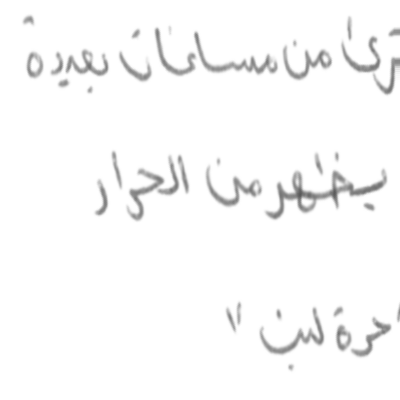 ترى من مسافات بعيدة
يظهر من الحرار
حرة لبن "